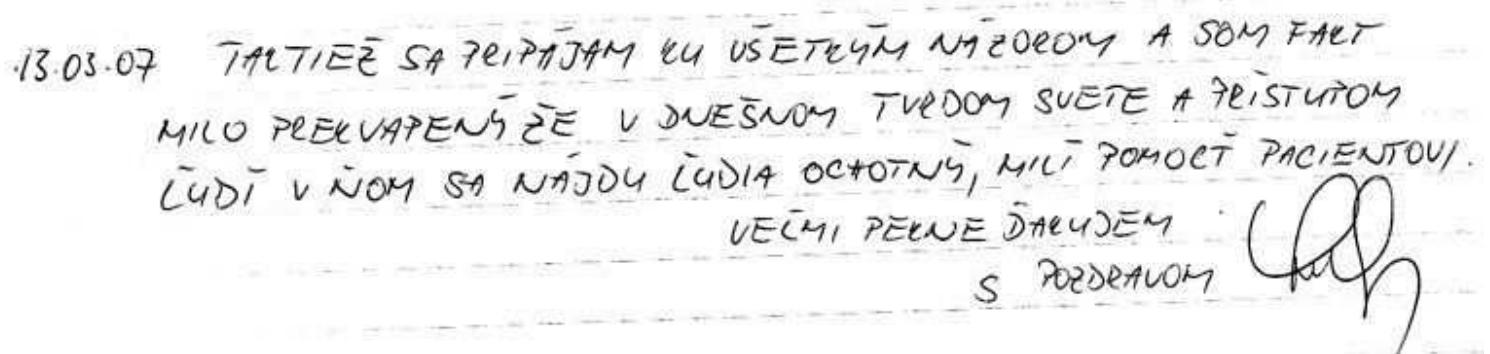 13.03.07 TAKTIEŽ SA PRIPÁJAM KU VŠETKÝM NÁZOROM A SOM FAKT
MILO PREKVAPENÝ ŽE V DNEŠNOM TVRDOM SVETE A PRÍSTUPOM
ĽUDÍ V ŇOM SA NÁJDU ĽUDIA OCHOTNÝ, MILÍ POMOCŤ PACIENTOVI.
VEĽMI PEKNE ĎAKUJEM
S POZDRAVOM